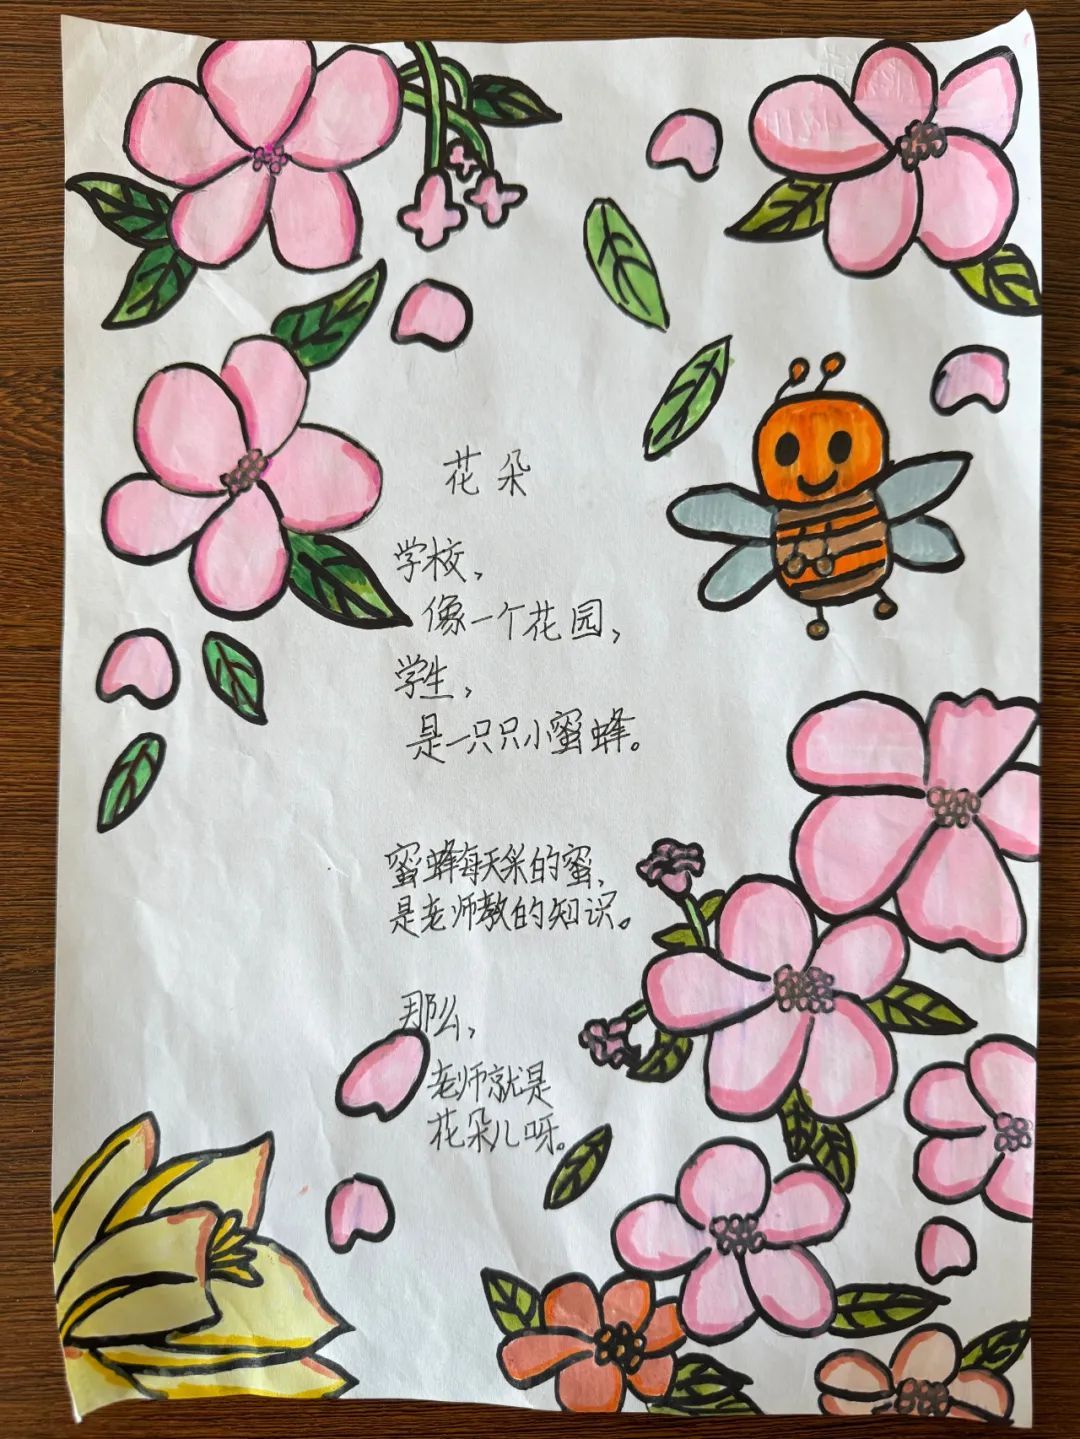 花朵
学校，
像一个花园，
学生，
是一只只小蜜蜂。
蜜蜂每天采的蜜，
是老师教的知识。
那么，
老师就是
花朵儿呀。